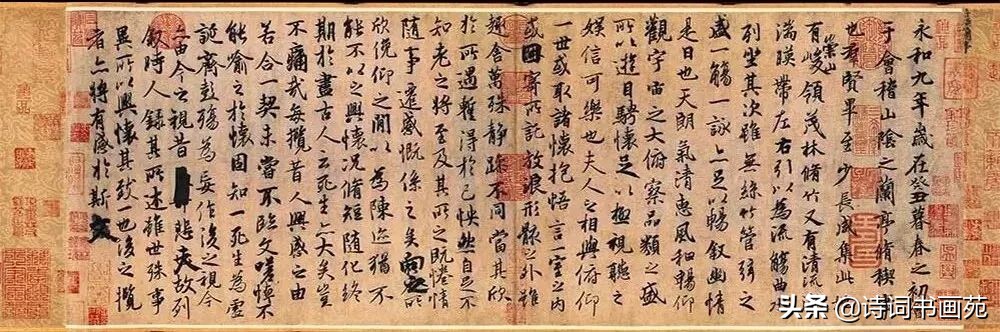 永和九年歲在癸丑暮春之初
于會稽山陰之蘭亭脩稧
也羣賢畢至少長咸集此
有崇山峻領茂林脩竹又有清流
湍暎帶左右引以為流觴曲水
列坐其次雖無絲竹管弦之
盛一觴一詠亦足以暢敘幽情
是日也天朗氣清惠風和暢仰
觀宇宙之大俯察品類之盛
所以遊目騁懷足以極視聽之
娛信可樂也夫人之相與俯仰
一世或取諸懷抱悟言一室之內
或因寄所託放浪形骸之外雖
趣舍萬殊靜躁不同當其欣
於所遇蹔得於己怏然自足不
知老之將至及其所之既惓情
隨事遷感慨係之矣向之所
欣俛仰之閒以為陳迹猶不
能不以之興懷況脩短隨化終
期於盡古人云死生亦大矣豈
不痛哉每攬昔人興感之由
若合一契未嘗不臨文嗟悼不
能喻之於懷固知一死生為虛
誕齊彭殤為妄作後之視今
亦由今之視昔悲夫故列
敘時人錄其所述雖世殊事
異所以興懷其致一也後之攬
者亦將有感於斯文
头条 @诗词书画苑